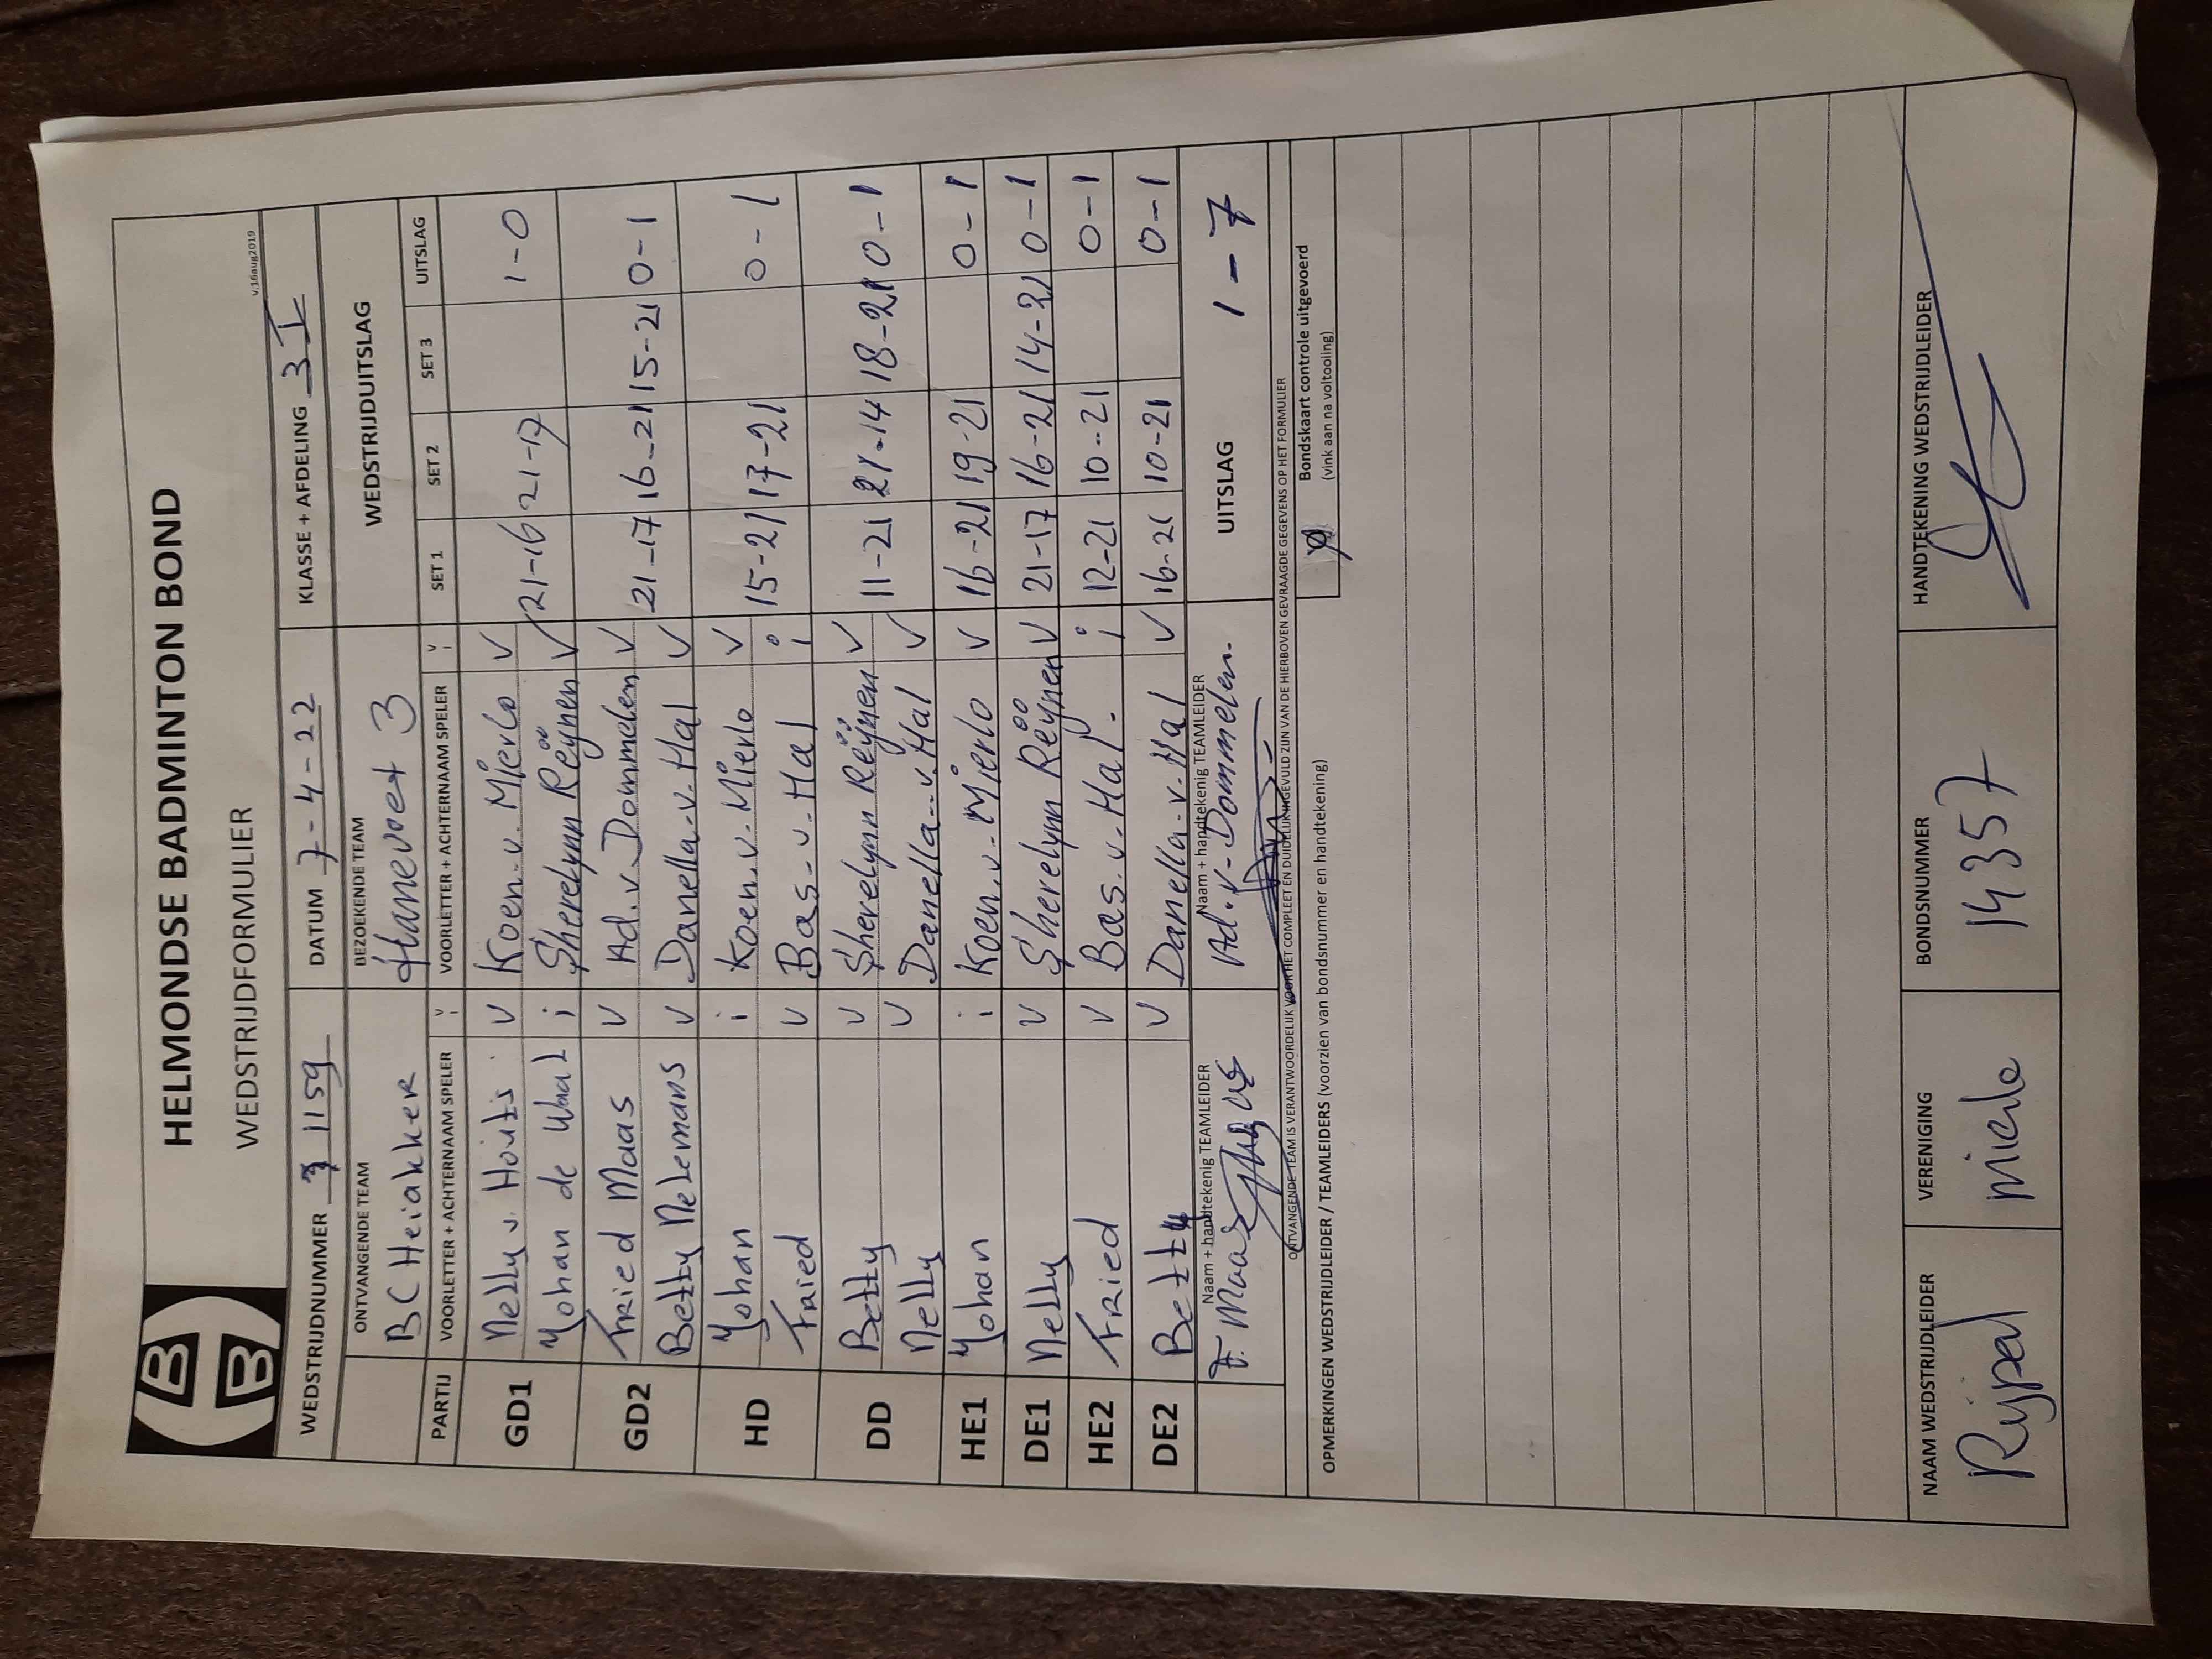 HELMONDSE BADMINTON BOND
WEDSTRIJDFORMULIER
v.16aug2019
WEDSTRIJDNUMMER 1159 DATUM 7-4-22 KLASSE + AFDELING 3 I
ONTVANGENDE TEAM BEZOEKENDE TEAM WEDSTRIJDUITSLAG
BC Heiakker Hanevoet 3
PARTIJ VOORLETTER + ACHTERNAAM SPELER V i VOORLETTER + ACHTERNAAM SPELER V i SET 1 SET 2 SET 3 UITSLAG
GD1 Nelly v. Houts V Koen v. Mierlo V 21-16 21-17 1-0
Johan de Waal i Sherelynn Reijnen V
GD2 Fried Maas V Ad. v. Dommelen V 21-17 16-21 15-21 0-1
Betty Nelemans V Danella v. Hal V
HD Johan i Koen. v. Mierlo V 15-21 17-21 0-1
Fried V Bas v. Hal i
DD Betty V Sherelynn Reijnen V 11-21 21-14 18-21 0-1
Nelly V Danella v. Hal V
HE1 Johan i Koen v. Mierlo V 16-21 19-21 0-1
DE1 Nelly V Sherelynn Reijnen V 21-17 16-21 14-21 0-1
HE2 Fried V Bas. v. Hal. i 12-21 10-21 0-1
DE2 Betty V Danella v. Hal V 16-21 10-21 0-1
Naam + handtekenig TEAMLEIDER Naam + handtekenig TEAMLEIDER UITSLAG 1-7
F. Maas Ad. v. Dommelen.
ONTVANGENDE TEAM IS VERANTWOORDELIJK VOOR HET COMPLEET EN DUIDELIJK INGEVULD ZIJN VAN DE HIERBOVEN GEVRAAGDE GEGEVENS OP HET FORMULIER
OPMERKINGEN WEDSTRIJDLEIDER / TEAMLEIDERS (voorzien van bondsnummer en handtekening)
Bondskaart controle uitgevoerd
(vink aan na voltooling)
NAAM WEDSTRIJDLEIDER VERENIGING BONDSNUMMER HANDTEKENING WEDSTRIJDLEIDER
Rijpal mierlo 14357